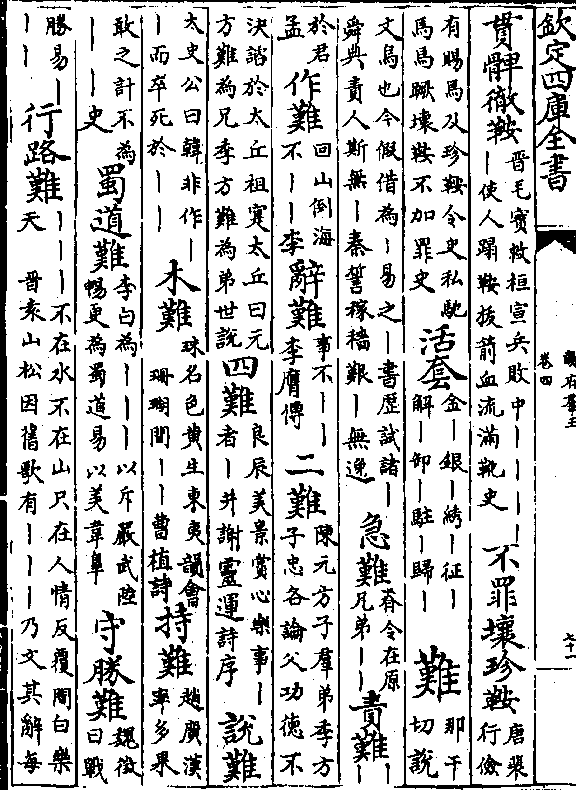 欽定四庫全書
韻府羣玉
卷四
七十一
貫髀徹鞍 晉毛寶救桓宣兵敗中————
—使人蹋鞍拔箭血流滿靴史 不罪壞珍鞍 唐裴
行儉
有賜馬及珍鞍令史私馳
馬馬蹶壞鞍不加罪史 活套 金—銀—綉—征—
解—卸—駐—歸— 難 那干
切說
文鳥也今假借為—易之—書歷試諸—
舜典責人斯無—秦誓稼穡艱—無逸 急難 脊令在原
兄弟—— 責難——
於君
孟 作難 回山倒海
不——李 辭難 事不——
李膺傳 二難 陳元方子羣弟季方
子忠各論父功德不
決諮於太丘祖寔太丘曰元
方難為兄季方難為弟世說 四難 良辰美景賞心樂事—
者—并謝靈運詩序 說難
太史公曰韓非作—
—而卒死於—— 木難 珠名色黄生東夷韻會
珊瑚間——曹植詩 持難 趙廣漢
率多果
敢之計不為
——史 蜀道難 李白為———以斥嚴武陸
暢更為蜀道易以美韋臯 守勝難 魏徵
曰戰
勝易—
—— 行路難 ———不在水不在山只在人情反覆間白樂
天 晉袁山松因舊歌有———乃文其辭每